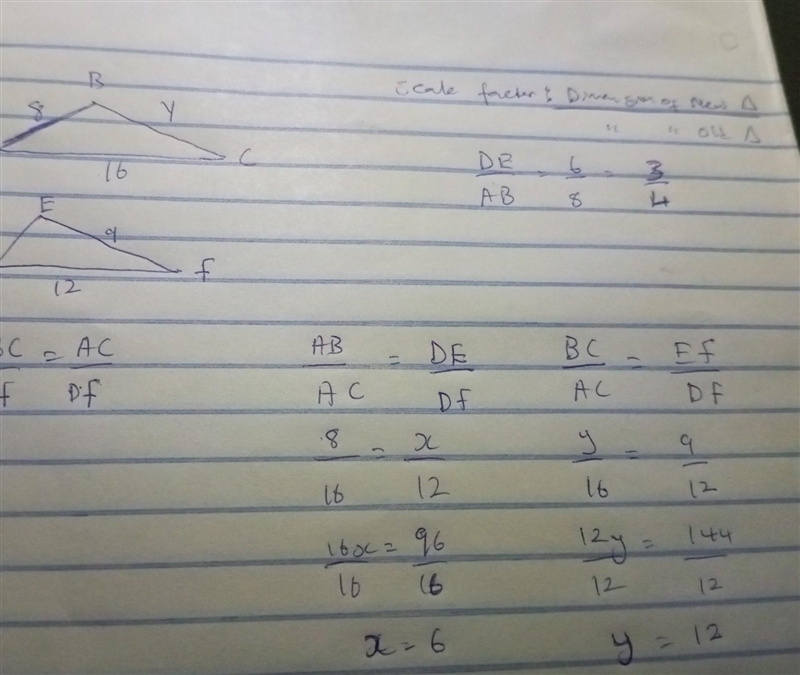 B
8 y
16 C
E
9
12 f
Scale factor : Dimension of New Δ
" " Old Δ
DE/AB = 6/8 = 3/4
BC/f = AC/Df
AB/AC = DE/Df
8/16 = x/12
16x/16 = 96/16
x = 6
BC/AC = Ef/DF
y/16 = 9/12
12y/12 = 144/12
y = 12